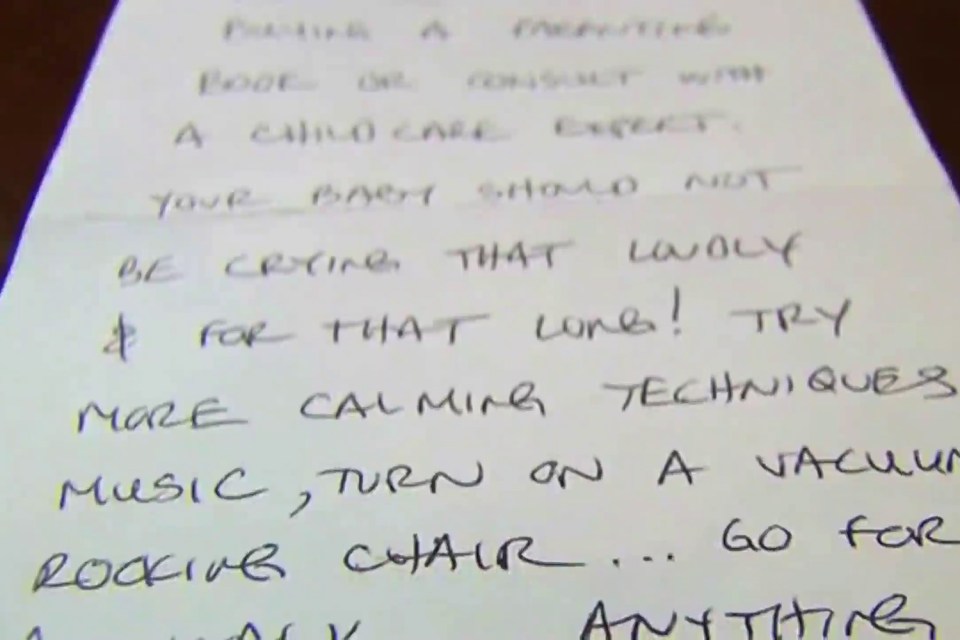 BUYING A PARENTING
BOOK OR CONSULT WITH
A CHILDCARE EXPERT.
YOUR BABY SHOULD NOT
BE CRYING THAT LOUDLY
& FOR THAT LONG! TRY
MORE CALMING TECHNIQUES
MUSIC, TURN ON A VACUUM
ROCKING CHAIR... GO FOR
A WALK ANYTHING